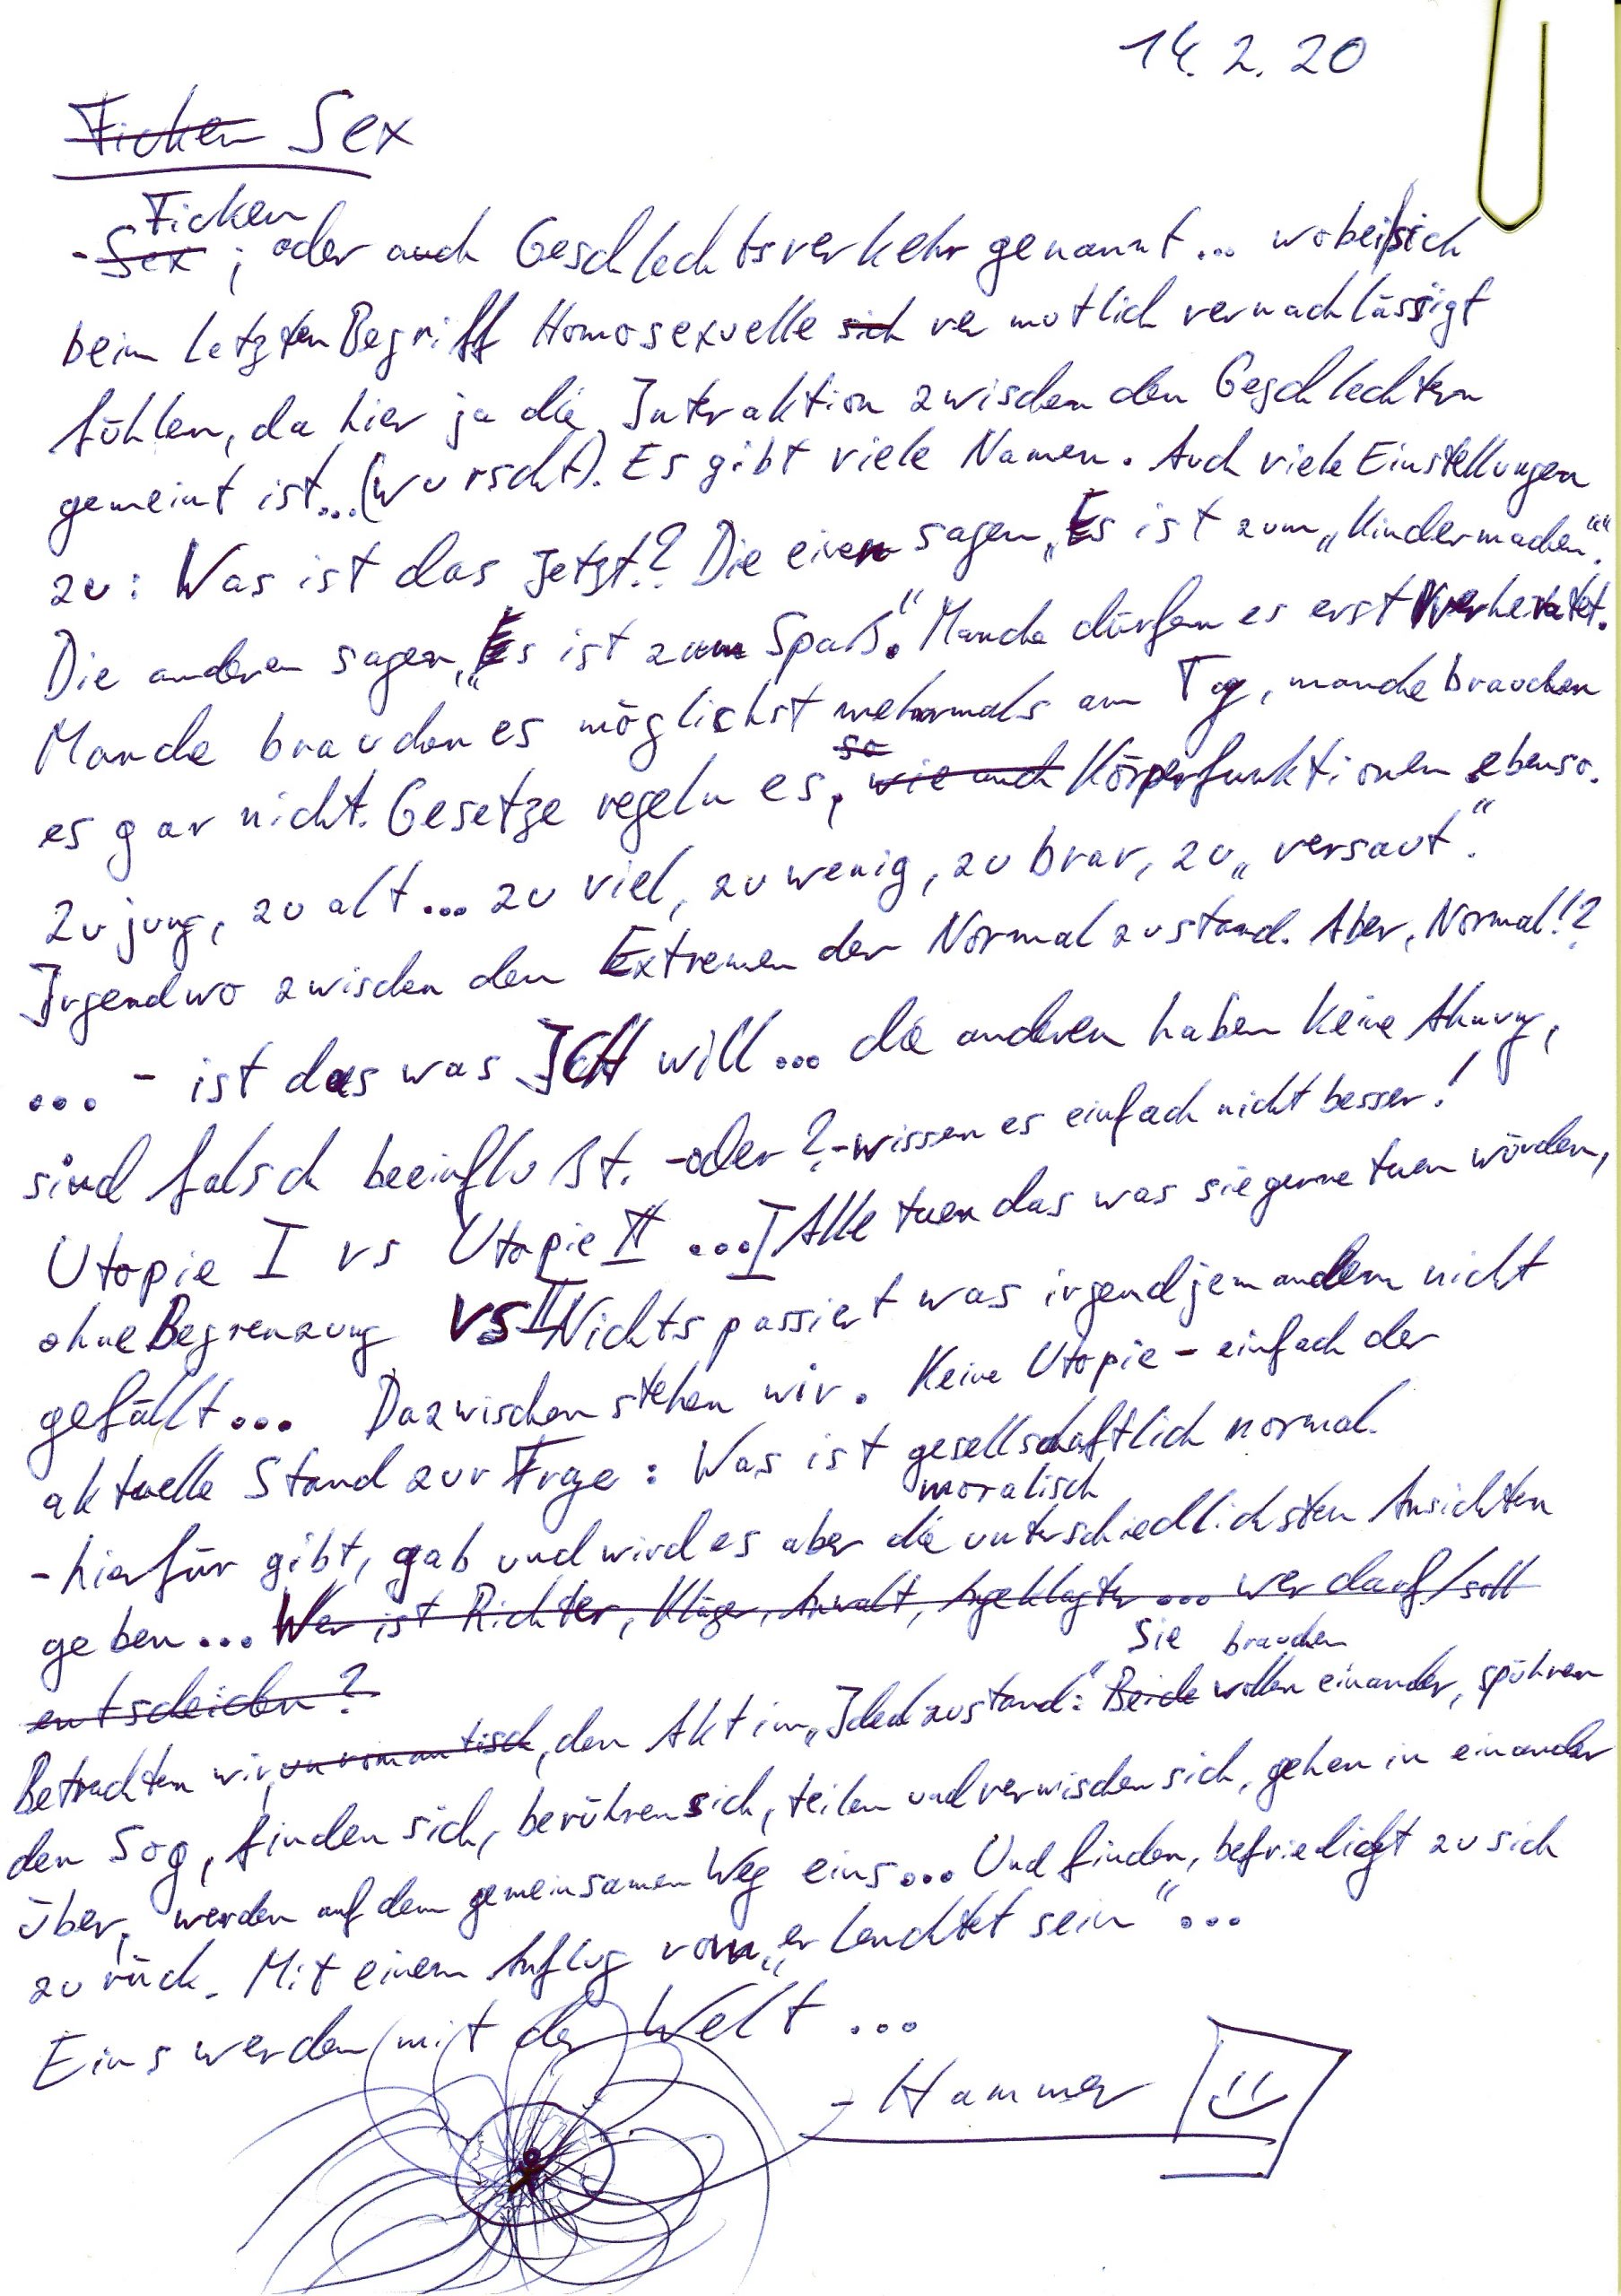 14. 2. 20
Ficken Sex
Ficken
- Sex ; oder auch Geschlechtsverkehr genannt... wobei sich
beim letzten Begriff Homosexuelle sich vermutlich vernachlässigt
fühlen, da hier ja die Interaktion zwischen den Geschlechtern
gemeint ist...(wurscht). Es gibt viele Namen. Auch viele Einstellungen
zu: Was ist das jetzt!? Die einen sagen „Es ist zum „Kindermachen"".
Die anderen sagen „Es ist zum Spaß." Manche dürfen es erst verheiratet.
Manche brauchen es möglichst mehrmals am Tag, manche brauchen
so
es gar nicht. Gesetze regeln es, wie auch Körperfunktionen ebenso.
Zu jung, zu alt... zu viel, zu wenig, zu brav, zu „versaut".
Irgendwo zwischen den Extremen der Normalzustand. Aber, Normal!?
... - ist das was ICH will... die anderen haben keine Ahnung,
sind falsch beeinflußt. -oder?-wissen es einfach nicht besser!
Utopie I vs Utopie II ...I Alle tuen das was sie gerne tuen würden,
ohne Begrenzung VS II Nichts passiert was irgendjemandem nicht
gefällt... Dazwischen stehen wir. Keine Utopie - einfach der
aktuelle Stand zur Frage: Was ist gesellschaftlich normal.
moralisch
- hierfür gibt, gab und wird es aber die unterschiedlichsten Ansichten
geben... Wer ist Richter, Kläger, Anwalt, Angeklagter ... wer darf/soll
entscheiden?
Sie brauchen
Betrachten wir, unromantisch, den Akt im „Idealzustand": Beide wollen einander, spühren
den Sog, finden sich, berühren sich, teilen und vermischen sich, gehen in einander
über, werden auf dem gemeinsamen Weg eins... Und finden, befriedigt zu sich
zurück. Mit einem Anflug vom „erleuchtet sein"...
Eins werden mit der Welt ...
- Hammer